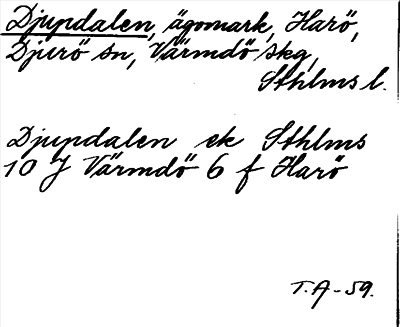 Djupdalen, ägomark, Harö,
Djurö sn, Värmdö skg,
Sthlms l.
Djupdalen ek Sthlms
10 J Värmdö 6 f Harö
T.A-59.